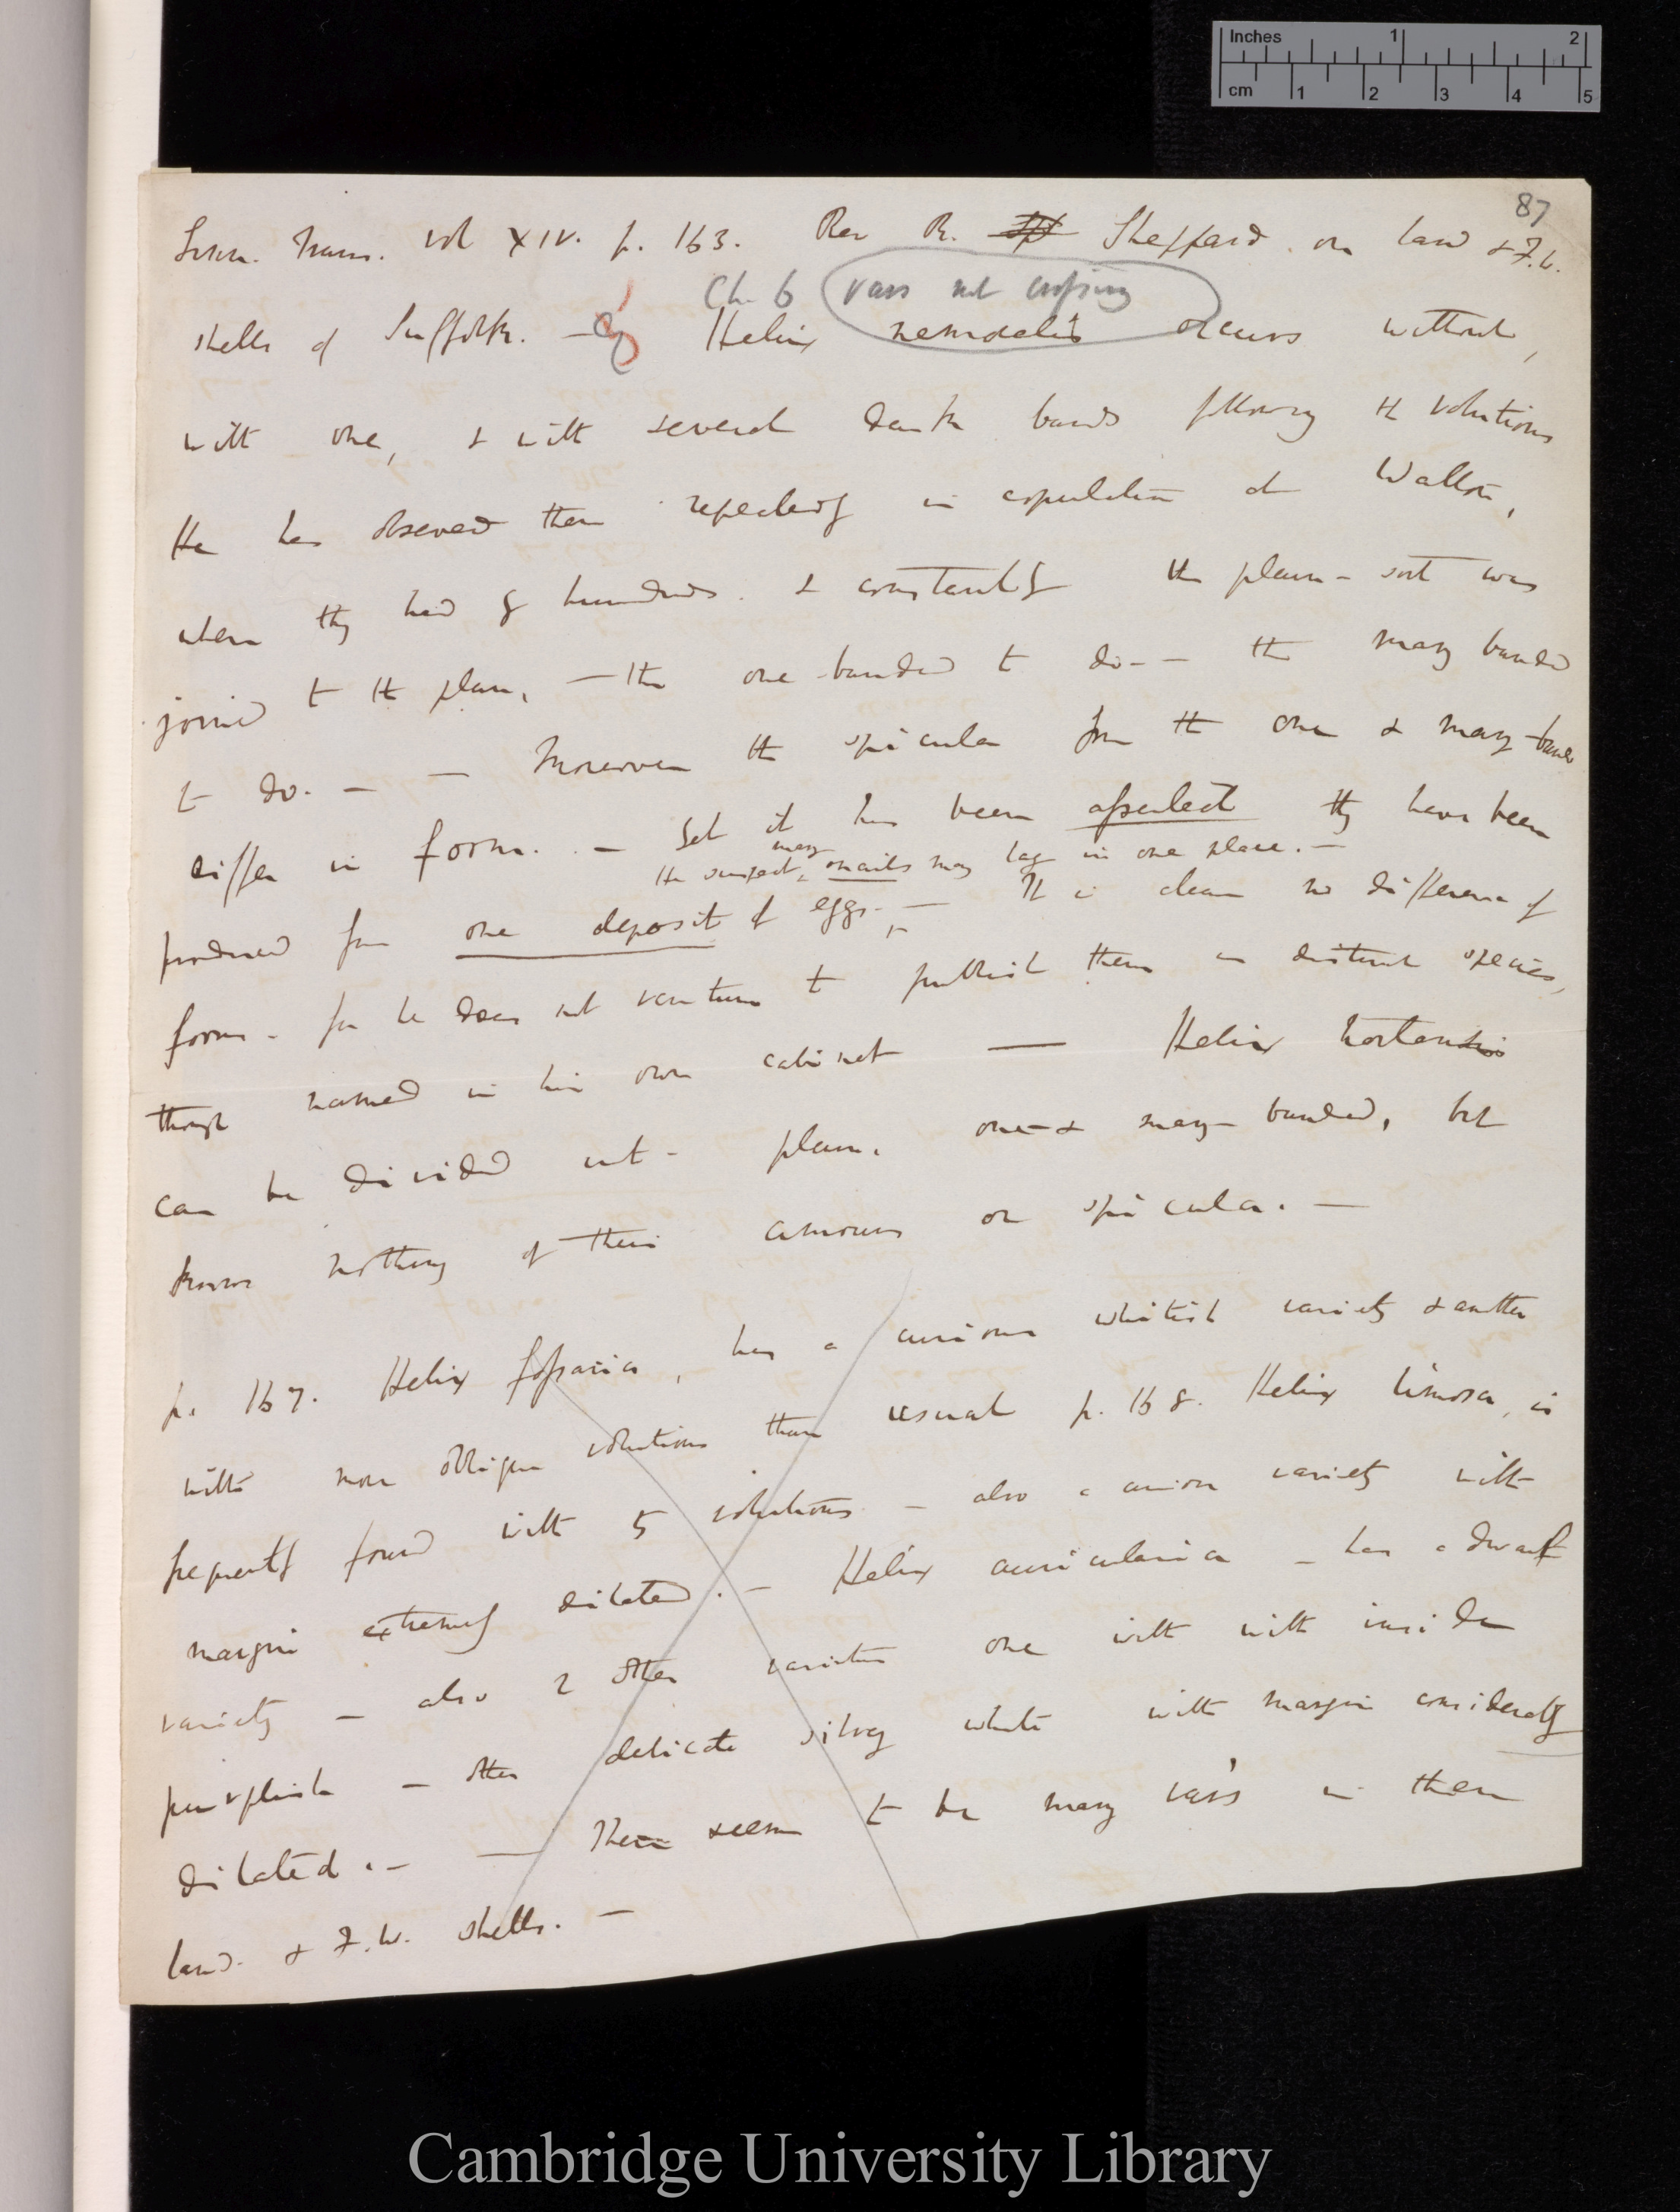 Inches 1 2
cm 1 2 3 4 5
87
Linn. Trans. vol XIV. p. 163. Rev R. Sheppard on land & F.W.
Ch. 6 vars not crossing
shells of Suffolk. — Helix nemoralis occurs without,
with one, & with several dark bands following the volutions
He has observed them repeatedly in copulation at Walton,
where they laid by hundreds. & constantly the plain-sort was
joined to the plain, — the one-banded to do — the many banded
to do. — — Moreover the spicula from the one & many banded
differ in form. — Yet it has been asserted they have been
He suspects many snails may lay in one place. —
produced from one deposit of eggs. — It is clear no difference of
form - for he does not venture to publish them as distinct species,
though named in his own cabinet — Helix hortensis
can be divided into plain, one- & many-banded, but
knows nothing of their amours or spicula. —
p. 167. Helix fossaria, has a curious whitish variety & another
with more oblique volutions than usual p. 168. Helix limosa, is
frequently found with 5 volutions — also a curious variety with
margin extremely dilated. — Helix auricularia — has a dwarf
variety — also 2 other varieties one with with inside
purplish — other delicate silvery white with margin considerably
dilated. — — There seem to be many vars in these
land. & F.W. shells. —
Cambridge University Library